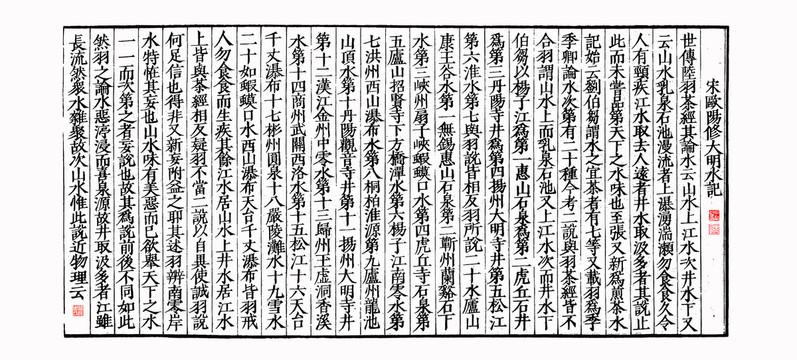 宋歐陽修大明水記
世傳陸羽茶經其論水云山水上江水次井水下又
云山水乳泉石池漫流者上瀑湧湍瀨勿食食久令
人有頸疾江水取去人遠者井水取汲多者其說止
此而未嘗品第天下之水味也至張又新為煎茶水
記始云劉伯芻謂水之宜茶者有七等又載羽為李
季卿論水次第有二十種今考二說與羽茶經皆不
合羽謂山水上而乳泉石池又上江水次而井水下
伯芻以楊子江為第一惠山石泉為第二虎丘石井
為第三丹陽寺井為第四揚州大明寺井第五松江
第六淮水第七與羽說皆相反羽所說二十水廬山
康王谷水第一無錫惠山石泉第二蘄州蘭谿石下
水第三峽州扇子峽蝦蟆口水第四虎丘寺石泉第
五廬山招賢寺下方橋潭水第六楊子江南零水第
七洪州西山瀑布水第八桐柏淮源第九廬州龍池
山頂水第十丹陽觀音寺井第十一揚州大明寺井
第十二漢江金州中零水第十三歸州玉虛洞香溪
水第十四商州武關西洛水第十五松江十六天台
千丈瀑布十七彬州圓泉十八嚴陵灘水十九雪水
二十如蝦蟆口水西山瀑布天台千丈瀑布皆羽戒
人勿食食而生疾其餘江水居山水上井水居江水
上皆與茶經相反疑羽不當二說以自異使誠羽說
何足信也得非又新妄附益之耶其述羽辨南零岸
水特怪其妄也山水味有美惡而已欲舉天下之水
一一而次第之者妄說也故其為說前後不同如此
然羽之論水惡渟浸而喜泉源故井取汲多者江雖
長流然衆水雜聚故次山水惟此說近物理云